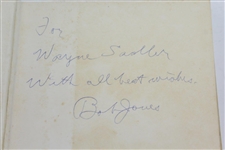 For
Wayne Sadler
With all best wishes.
Bob Jones